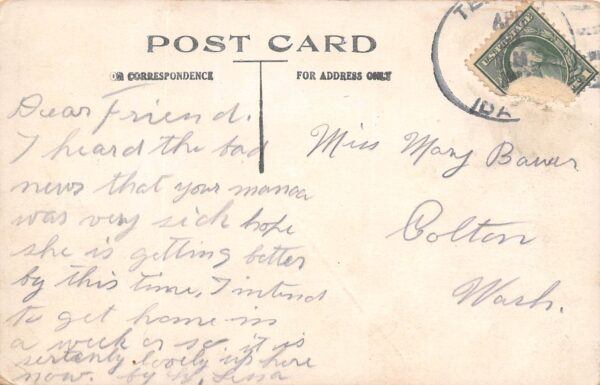 POST CARD
OR CORRESPONDENCE
FOR ADDRESS ONLY
Dear Friend.
I heard the bad
news that your mama
was very sick hope
she is getting better
by this time, I intend
to get home in
a week or so it is
sertenly lovely up here
now. by
Miss Mary Bauer
Colton
Wash.
U.S. POSTAGE
TE
AP
IDA